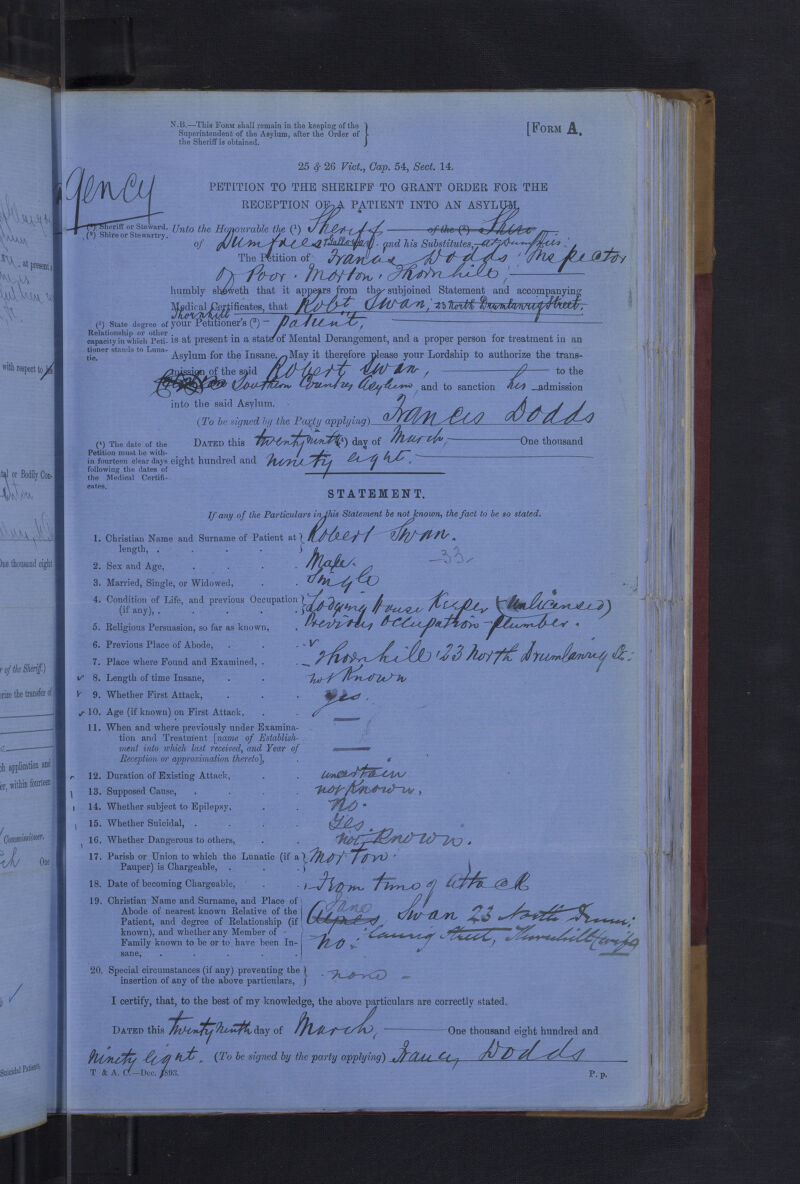 N.B.—This Form shall remain in the keeping of the
Superintendent of the Asylum, after the Order of
the Sheriff is obtained.
[Form A.
25 & 26 Vict., Cap. 54, Sect. 14.
gency
PETITION TO THE SHERIFF TO GRANT ORDER FOR THE
RECEPTION OF A PATIENT INTO AN ASYLUM.
(¹) Sheriff or Steward.
(²) Shire or Stewartry.
Unto the Honourable the (¹) Sheriff of the (²) Shire
of Dumfries & Galloway and his Substitutes, at Dumfries.
The Petition of Francis Dodds, Inspector
of Poor. Morton, Thornhill
humbly sheweth that it appears from the subjoined Statement and accompanying
Medical Certificates, that Robt Swan, 23 North Drumlanrig Street,
Thornhill
(³) State degree of
Relationship or other
capacity in which Peti-
tioner stands to Luna-
tic.
your Petitioner's (³) Patient,
is at present in a state of Mental Derangement, and a proper person for treatment in an
Asylum for the Insane. May it therefore please your Lordship to authorize the trans-
mission of the said Robert Swan, to the
Southern Counties Asylum, and to sanction his admission
into the said Asylum.
(To be signed by the Party applying) Francis Dodds
(⁴) The date of the
Petition must be with-
in fourteen clear days
following the dates of
the Medical Certifi-
cates.
Dated this twenty ninth (⁴) day of March, One thousand
eight hundred and ninety eight.
STATEMENT.
If any of the Particulars in this Statement be not known, the fact to be so stated.
1. Christian Name and Surname of Patient at
length, Robert Swan.
2. Sex and Age, Male. —33
3. Married, Single, or Widowed, Single
4. Condition of Life, and previous Occupation
(if any), Lodging House Keeper (Unlicensed)
Previous occupation plumber.
5. Religious Persuasion, so far as known,
6. Previous Place of Abode,
7. Place where Found and Examined, Thornhill 23 North Drumlanrig St.
8. Length of time Insane, not known
9. Whether First Attack, yes.
10. Age (if known) on First Attack, —
11. When and where previously under Examina-
tion and Treatment [name of Establish-
ment into which last received, and Year of
Reception or approximation thereto], —
12. Duration of Existing Attack, uncertain
13. Supposed Cause, not known.
14. Whether subject to Epilepsy, No.
15. Whether Suicidal, Yes
16. Whether Dangerous to others, not known.
17. Parish or Union to which the Lunatic (if a
Pauper) is Chargeable, Morton.
18. Date of becoming Chargeable, From time of attack
19. Christian Name and Surname, and Place of
Abode of nearest known Relative of the
Patient, and degree of Relationship (if
known), and whether any Member of
Family known to be or to have been In-
sane,
Jane
Agnes Swan 23 North Drum-
lanrig Street, Thornhill (wife)
no.
20. Special circumstances (if any) preventing the
insertion of any of the above particulars, none
I certify, that, to the best of my knowledge, the above particulars are correctly stated.
Dated this twenty ninth day of March, One thousand eight hundred and
ninety eight. (To be signed by the party applying) Francis Dodds
T & A. C.—Dec. 1893.
P. p.
at present
with respect to
or Bodily Con-
One thousand eight
of the Sheriff.)
rize the transfer of
application and
within fourteen
Commissioner.
One
Suicidal Patients